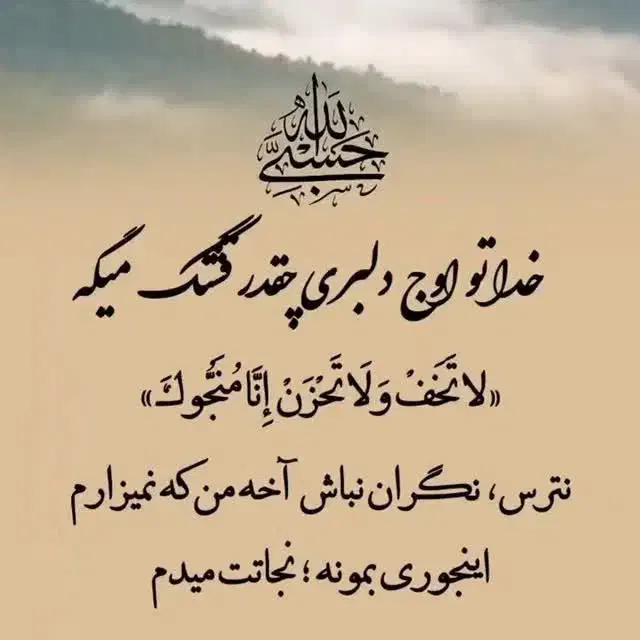 حسبي الله
خدا تو اوج دلبری چقدر قشنگ میگه
«لا تَخَفْ وَلَا تَحْزَنْ إِنَّا مُنَجُّوكَ»
نترس، نگران نباش آخه من که نمیزارم
اینجوری بمونه؛ نجاتت میدم